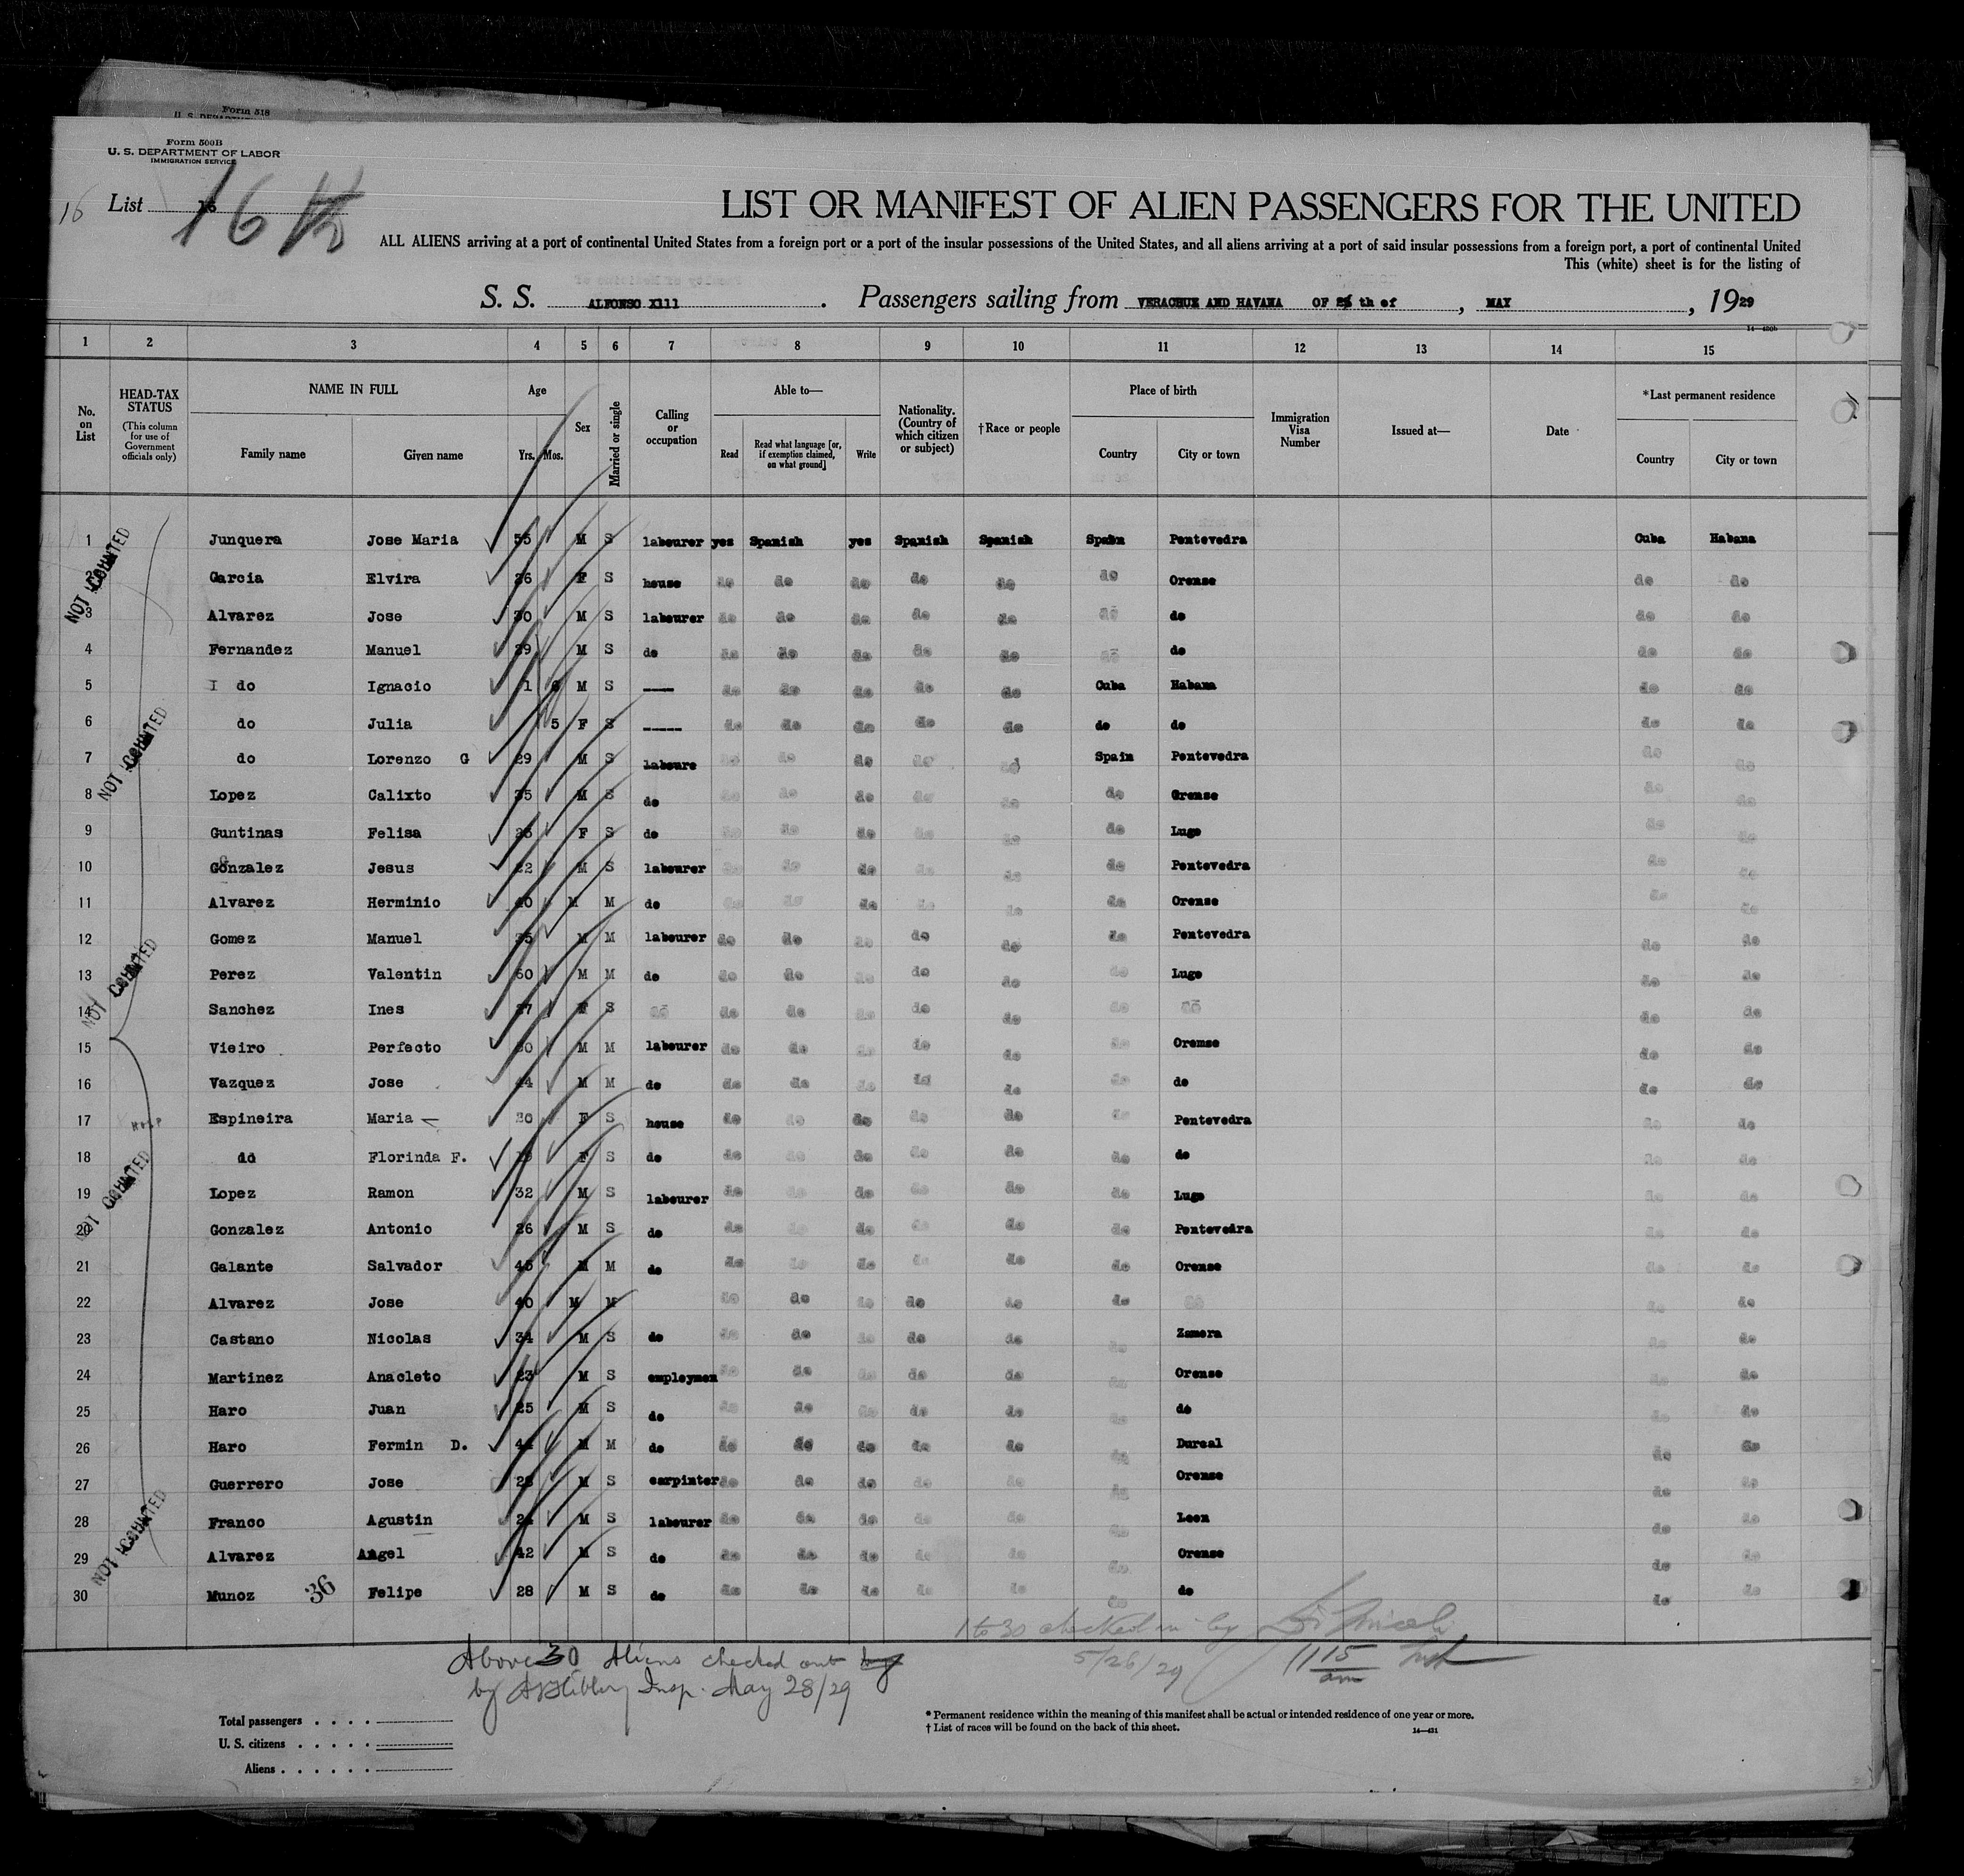 Form 518
U. S. DEPARTMENT
Form 500B
U. S. DEPARTMENT OF LABOR
IMMIGRATION SERVICE
16 List 16 16
LIST OR MANIFEST OF ALIEN PASSENGERS FOR THE UNITED
ALL ALIENS arriving at a port of continental United States from a foreign port or a port of the insular possessions of the United States, and all aliens arriving at a port of said insular possessions from a foreign port, a port of continental United
This (white) sheet is for the listing of
S. S. ALFONSO X111 . Passengers sailing from VERACRUZ AND HAVANA OF th of , MAY , 1929
14—480b
1 2 3 4 5 6 7 8 9 10 11 12 13 14 15
No. on List
HEAD-TAX STATUS (This column for use of Government officials only)
NAME IN FULL Family name Given name
Age Yrs. Mos.
Sex
Married or single
Calling or occupation
Able to— Read Read what language [or, if exemption claimed, on what ground] Write
Nationality. (Country of which citizen or subject)
†Race or people
Place of birth Country City or town
Immigration Visa Number
Issued at—
Date
*Last permanent residence Country City or town
1 Junquera Jose Maria 55 M S labourer yes Spanish yes Spanish Spanish Spain Pontevedra Cuba Habana
2 Garcia Elvira 26 F S house do do do do do do Orense do do
3 Alvarez Jose 30 M S labourer do do do do do do do do do
4 Fernandez Manuel 39 M S do do do do do do do do do do
5 I do Ignacio 1 6 M S ---- do do do do do Cuba Habana do do
6 do Julia 5 F S ----- do do do do do do do do do
7 do Lorenzo G 29 M S laboure do do do do do Spain Pontevedra do do
8 Lopez Calixto 35 M S do do do do do do do Orense do do
9 Guntinas Felisa 25 F S do do do do do do do Lugo do do
10 Gonzalez Jesus 22 M S labourer do do do do do do Pontevedra do do
11 Alvarez Herminio 40 M M do do do do do do do Orense do do
12 Gomez Manuel 35 M M labourer do do do do do do Pontevedra do do
13 Perez Valentin 50 M M do do do do do do do Lugo do do
14 Sanchez Ines 27 F S do do do do do do do do do do
15 Vieiro Perfecto 30 M M labourer do do do do do do Oremse do do
16 Vazquez Jose 44 M M do do do do do do do do do do
17 Espineira Maria 20 F S house do do do do do do Pontevedra do do
18 do Florinda F. F S do do do do do do do do do do
19 Lopez Ramon 32 M S labourer do do do do do do Lugo do do
20 Gonzalez Antonio 26 M S do do do do do do do Pontevedra do do
21 Galante Salvador 45 M M do do do do do do do Orense do do
22 Alvarez Jose 40 M M do do do do do do do do do
23 Castano Nicolas 34 M S do do do do do do do Zamora do do
24 Martinez Anacleto 23 M S employmen do do do do do do Orense do do
25 Haro Juan 25 M S do do do do do do do do do do
26 Haro Fermin D. M M do do do do do do do Durcal do do
27 Guerrero Jose 28 M S carpinter do do do do do do Orense do do
28 Franco Agustin M S labourer do do do do do do Leon do do
29 Alvarez Angel 42 M S do do do do do do do Orense do do
30 Munoz 36 Felipe 28 M S do do do do do do do do do do
NOT COUNTED
NOT COUNTED
NOT COUNTED
NOT COUNTED
NOT COUNTED
1 to 30 checked in by
5/26/29 1115 am Insp
Above 30 Aliens checked out by
by Insp. May 28/29
Total passengers
U. S. citizens
Aliens
* Permanent residence within the meaning of this manifest shall be actual or intended residence of one year or more.
† List of races will be found on the back of this sheet. 14—431